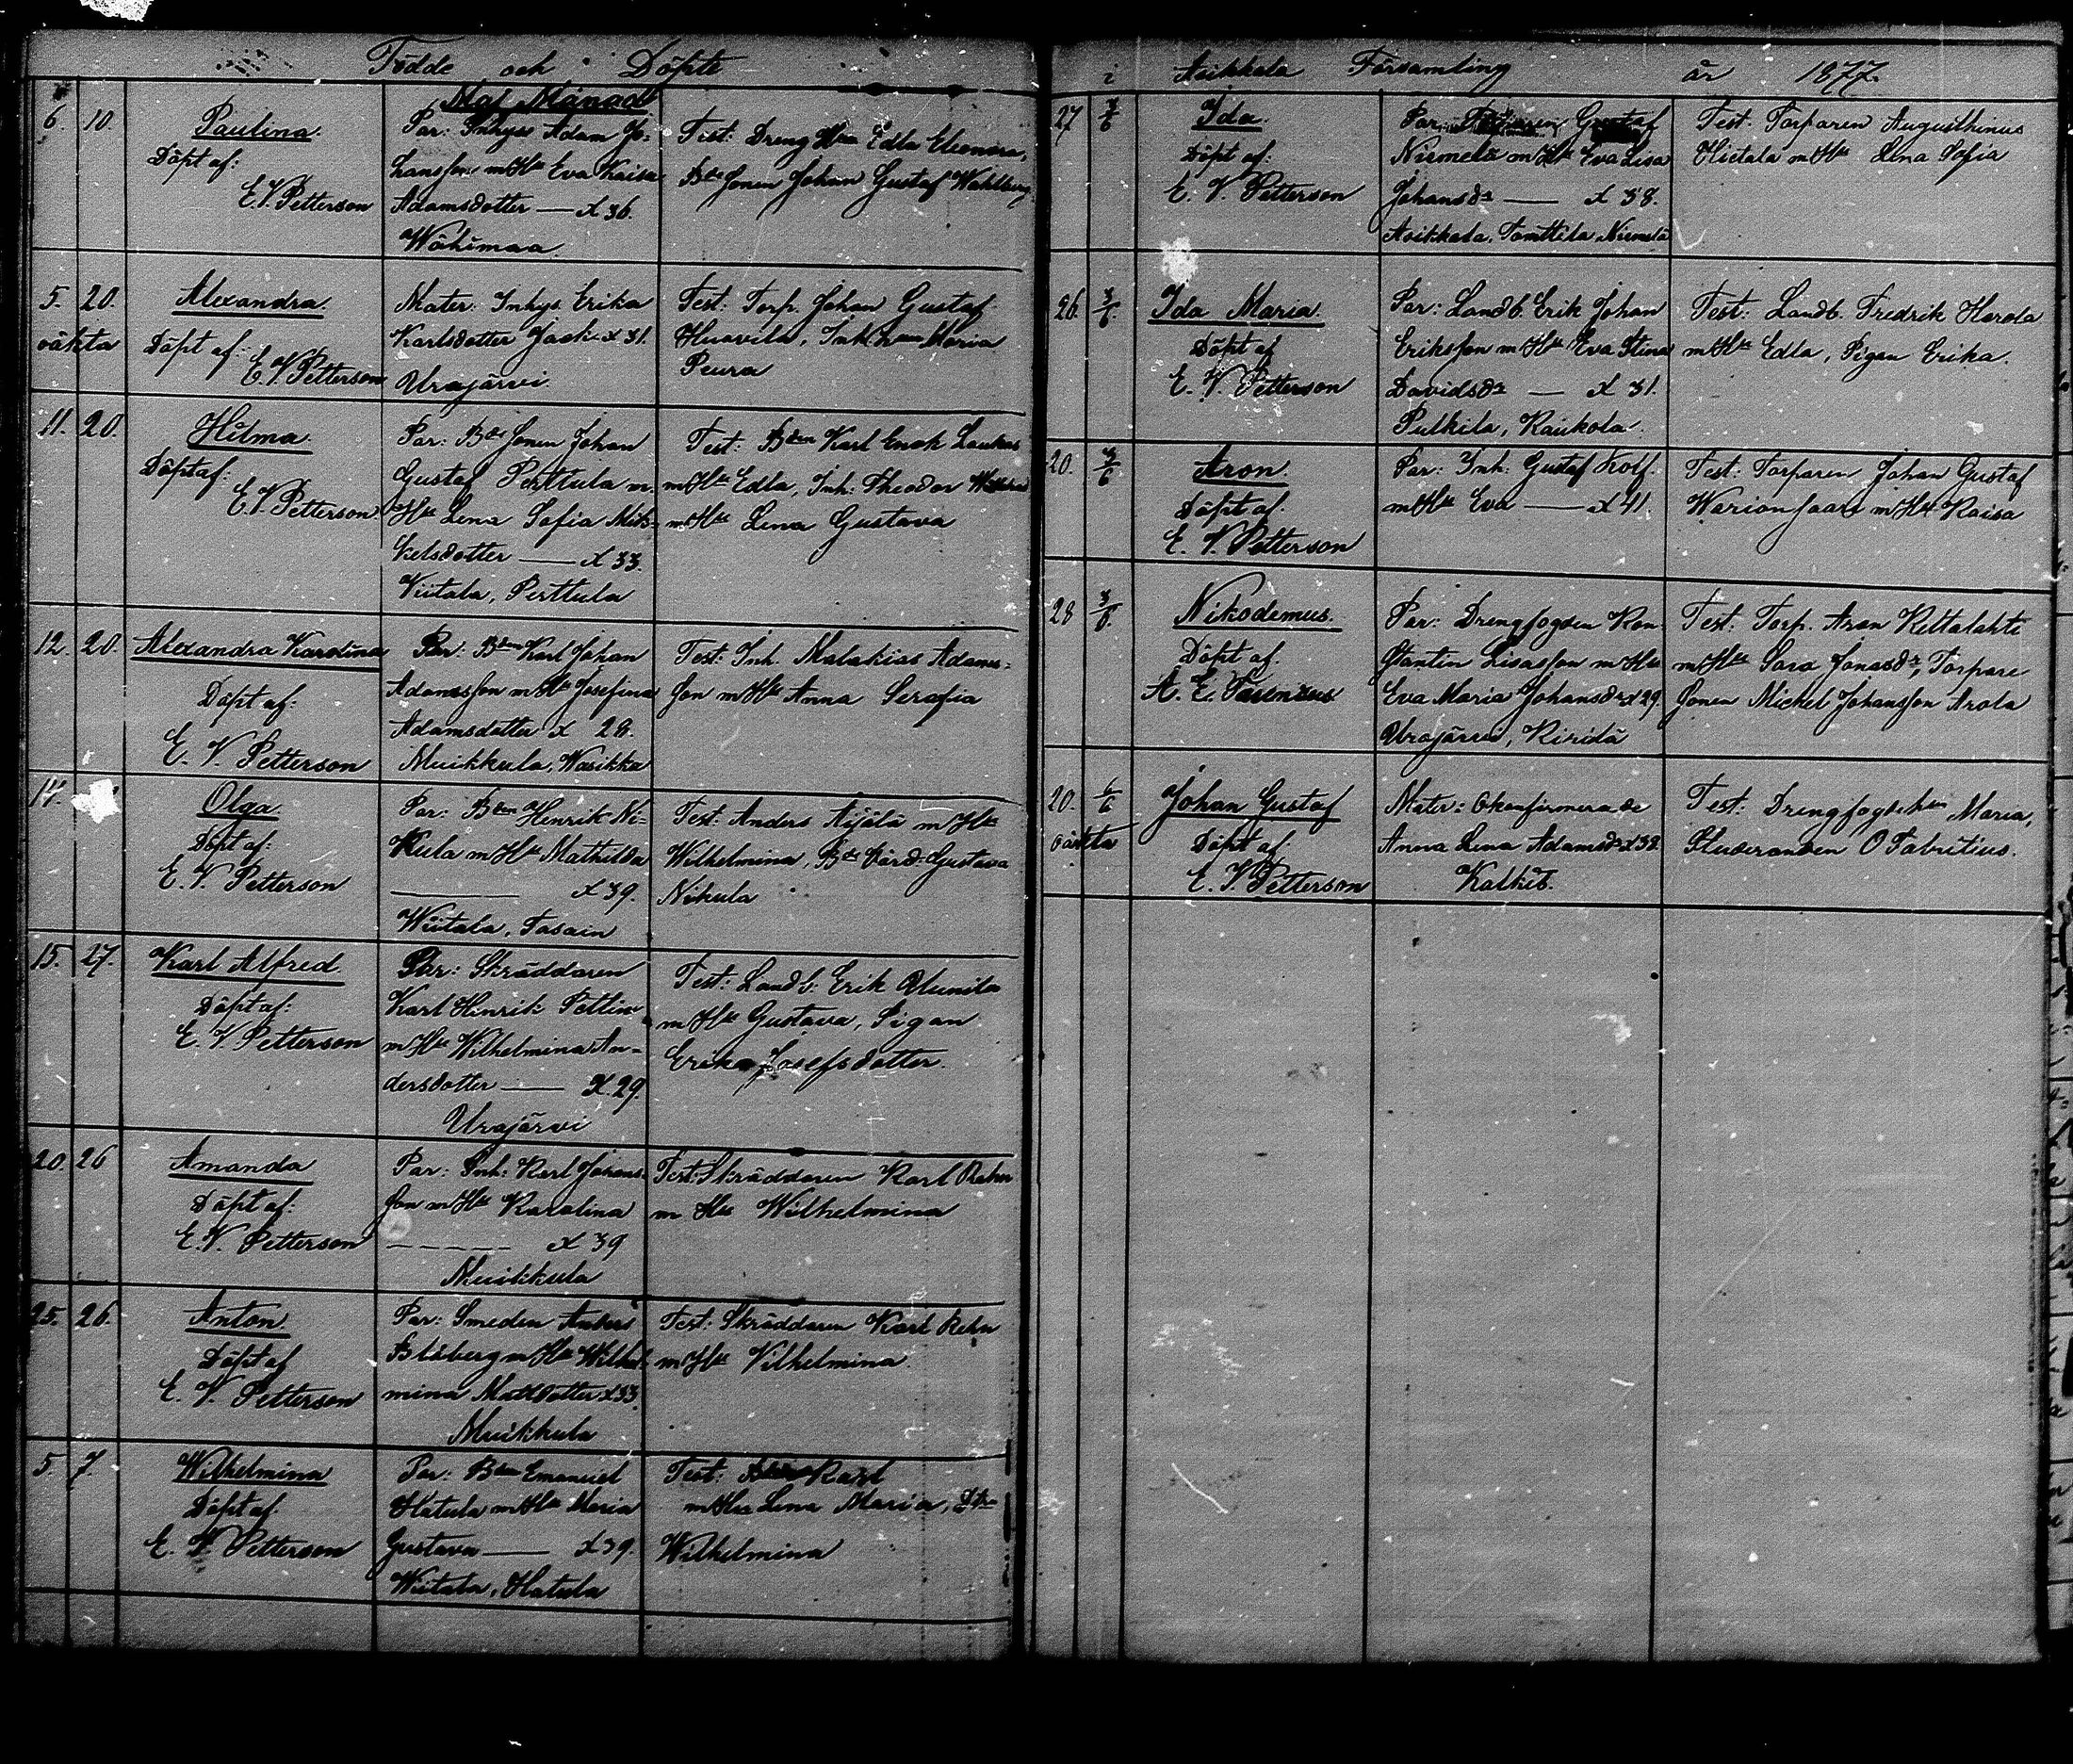 Födde och Döpte
Maj Månad
6. 10. Paulina.
Döpt af:
E. V. Petterson
Par: Inhys Adam Jo-
hansson m Hu Eva Kaisa
Adamsdotter — x 36.
Wähimaa.
Test: Dreng Hun Edla Eleonora,
Bde Sonen Johan Gustaf Wahlberg
5. 20. Alexandra.
oäkta
Döpt af:
E. V. Petterson
Mater: Inhys. Erika
Karlsdotter Jack x 31.
Urajärvi.
Test: Torp. Johan Gustaf
Huovila, Maria
Peura
11. 20. Hilma.
Döpt af:
E. V. Petterson.
Par: Bde Sonen Johan
Gustaf Perttula m.
Hu Lena Sofia Mik-
kelsdotter — x 33.
Viitala, Perttula
Test: Bden Karl Enok Laukas
m Hu Edla, Inh: Theodor
m Hu Lena Gustava
12. 20. Alexandra Karolina
Döpt af:
E. V. Petterson
Par: Bden Karl Johan
Adamsson m Hu Josefina
Adamsdotter x 28.
Muikkula, Wasikka
Test: Inh. Malakias Adams-
son m Hu Anna Serafia
14. Olga.
Döpt af:
E. V. Petterson
Par: Bden Henrik Ni-
kula m Hu Mathilda
— x 39.
Wiitala, Tasain
Test: Anders Äijälä m Hu
Wilhelmina, Gustava
Nikula
15. 27. Karl Alfred.
Döpt af:
E. V. Petterson
Par: Skräddaren
Karl Hinrik Pettin
m Hu Wilhelmina An-
dersdotter — x 29.
Urajärvi
Test: Landb: Erik Ylunila
m Hu Gustava, Pigan
Erika Josefsdotter.
20. 26 Amanda
Döpt af:
E. V. Petterson
Par: Inh: Karl Johans-
son m Hu Karolina
— x 39
Muikkula
Test: Skräddaren Karl Rehn
m Hu Wilhelmina
25. 26. Anton.
Döpt af
E. V. Petterson
Par: Smeden Anders
Blåberg m Hu Wilhel-
mina Matsdotter x 33.
Muikkula
Test: Skräddaren Karl Rehn
m Hu Vilhelmina.
5. 7. Wilhelmina
Döpt af
E. V. Petterson
Par: Bden Emanuel
Hatula m Hu Maria
Gustava — x 39.
Wiitala, Hatula
Test: Karl
m Hu Lena Maria,
Wilhelmina
i Asikkala Församling år 1877.
27 3/6 Ida.
Döpt af:
E. V. Petterson
Par: Gustaf
Niemelä m Hu Eva Lisa
Johansdr — x 38.
Asikkala, Tomttila Niemelä
Test: Torparen Augusthinus
Hietala m Hu Lena Sofia
26. 3/6. Ida Maria.
Döpt af
E. V. Petterson
Par: Landb. Erik Johan
Eriksson m Hu Eva Stina
Davidsdr — x 31.
Pulkila, Kaukola.
Test: Landb. Fredrik Harola
m Hu Edla, Pigan Erika.
20. 3/6 Aron.
Döpt af.
E. V. Petterson
Par: Inh: Gustaf Kolf.
m Hu Eva — x 41.
Test: Torparen Johan Gustaf
Warionsaari m Hu Kaisa
28 3/6. Nikodemus.
Döpt af.
A. E.
Par: Drengfogden Kon-
stantin Lisasson m Hu
Eva Maria Johansdr x 29.
Urajärvi, Kiridä
Test: Torp. Aron Kettalahti
m Hu Sara Jonasdr, Torpare
Sonen Michel Johansson Arola
20. 6/6 Johan Gustaf
oäkta
Döpt af.
E. V. Petterson
Mater: Okonfirmerade
Anna Lena Adamsdr x 38.
Kalkis.
Test: Drengfogdehun Maria,
Studeranden O Fabritius.